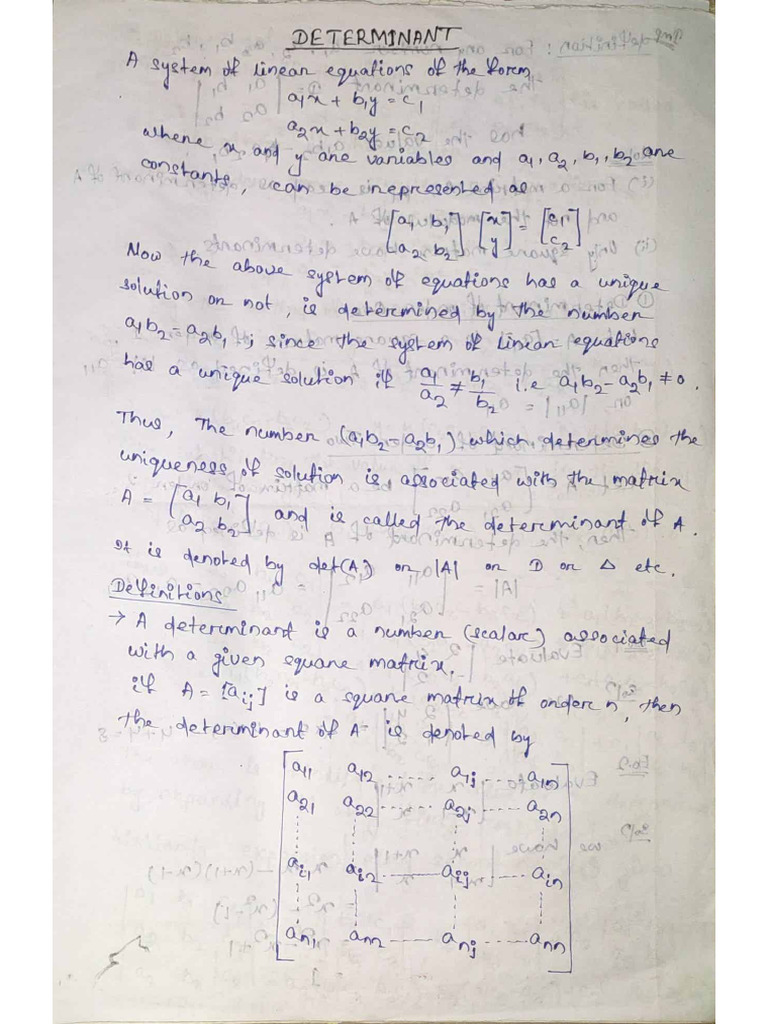 DETERMINANT
A system of linear equations of the form
a₁x + b₁y = c₁
a₂x + b₂y = c₂
where x and y are variables and a₁, a₂, b₁, b₂ are
constants, can be represented as
[a₁ b₁] [x] = [c₁]
[a₂ b₂] [y] [c₂]
Now the above system of equations has a unique
solution or not, is determined by the number
a₁b₂ = a₂b₁; since the system of linear equations
has a unique solution if a₁/a₂ ≠ b₁/b₂ i.e a₁b₂ - a₂b₁ ≠ 0.
Thus, The number (a₁b₂ = a₂b₁) which determines the
uniqueness of solution is, associated with the matrix
A = [a₁ b₁]
[a₂ b₂] and is called the determinant of A.
It is denoted by det(A) or |A| or D or Δ etc.
Definitions
→ A determinant is a number (scalar) associated
with a given square matrix.
if A = [aᵢⱼ] is a square matrix of order n, then
the determinant of A is denoted by
a₁₁ a₁₂ ...... a₁ⱼ .... a₁ₙ
a₂₁ a₂₂ ...... a₂ⱼ .... a₂ₙ
aᵢ₁ aᵢ₂ ...... aᵢⱼ .... aᵢₙ
aₙ₁ aₙ₂ ...... aₙⱼ .... aₙₙ